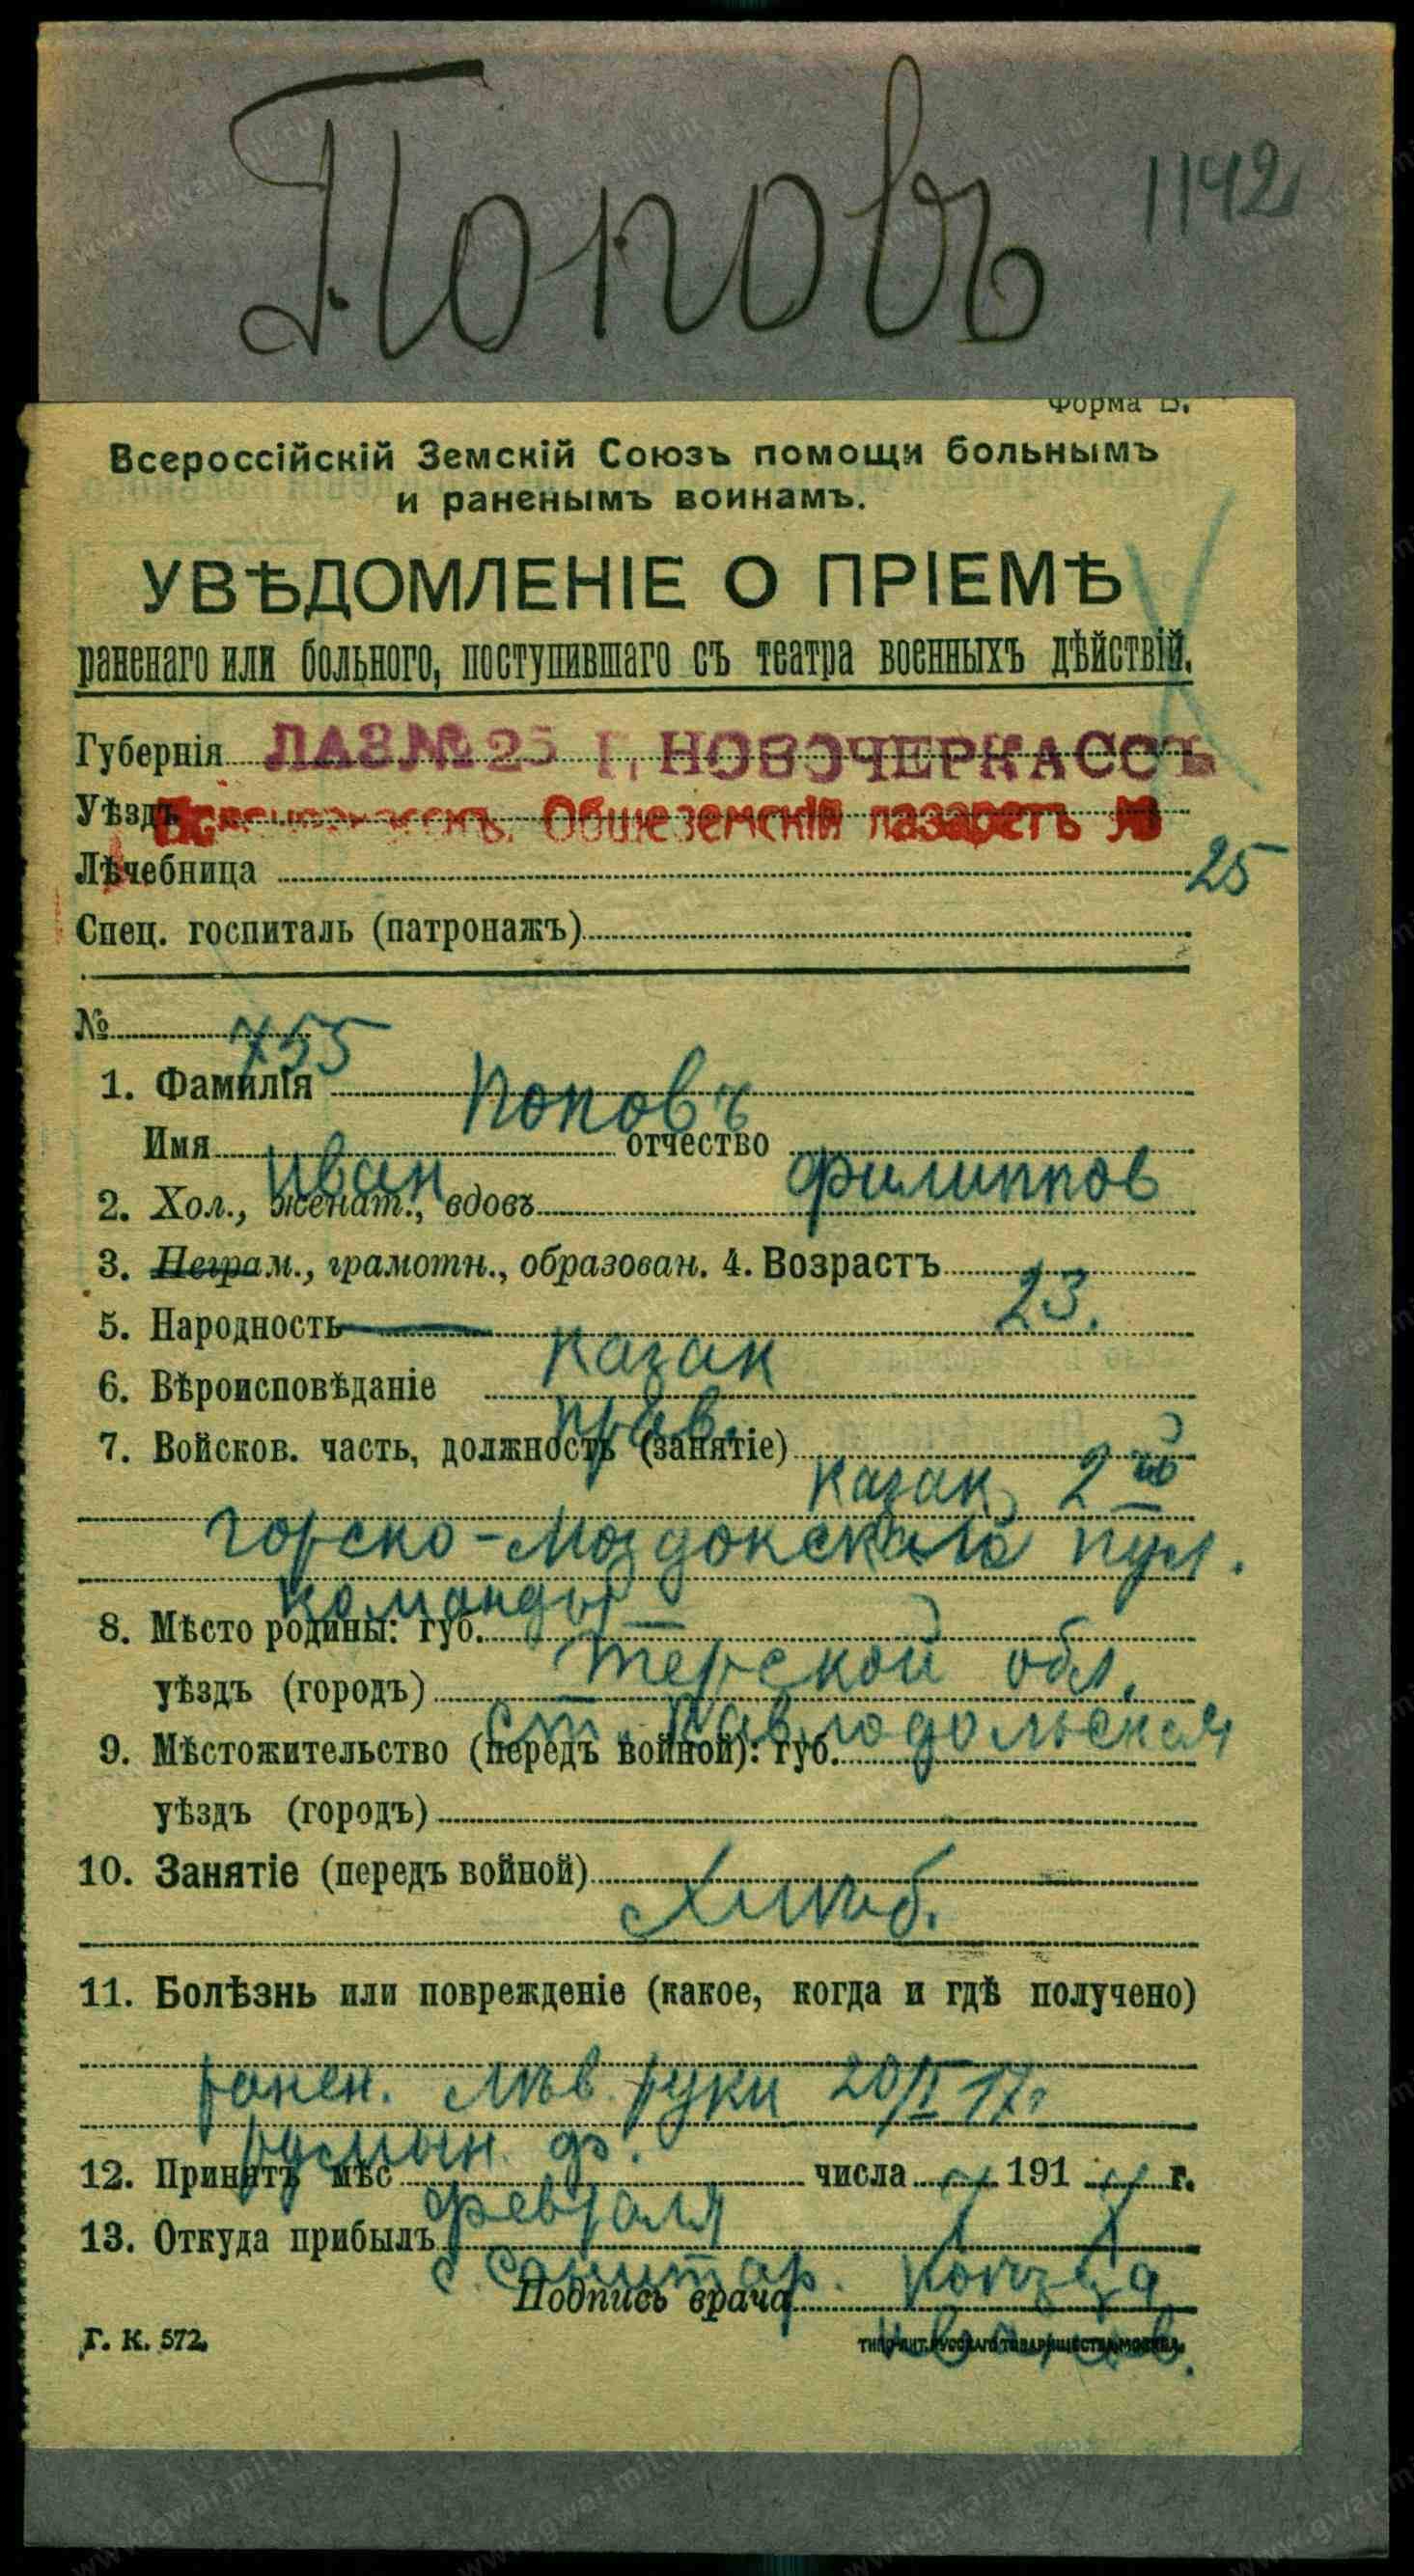 Поповъ
1142
Форма В.
Всероссійскій Земскій Союзъ помощи больнымъ
и раненымъ воинамъ.
УВѢДОМЛЕНІЕ О ПРІЕМѢ
раненаго или больного, поступившаго съ театра военныхъ дѣйствій.
Губернія ЛАЗ.№ 25 Г. НОВОЧЕРКАССЪ
Уѣздъ Общеземскій лазаретъ №
Лѣчебница 25
Спец. госпиталь (патронажъ)
№ 755
1. Фамилія Поповъ
Имя Иван отчество Филиппов
2. Хол., женат., вдовъ
3. Неграм., грамотн., образован. 4. Возрастъ 23.
5. Народность казак
6. Вѣроисповѣданіе прав.
7. Войсков. часть, должность (занятіе) казак 2ой
Горско-Моздокской пул.
команды
8. Мѣсто родины: губ. Терской обл.
уѣздъ (городъ) ст. Павлодольская
9. Мѣстожительство (передъ войной): губ.
уѣздъ (городъ)
10. Занятіе (передъ войной) Хлѣб.
11. Болѣзнь или поврежденіе (какое, когда и гдѣ получено)
ранен. лѣв. руки 20/I 17г.
румын. ф.
12. Принятъ мѣс февраля числа 1 191 7 г.
13. Откуда прибылъ с санитар. поѣзда
Подпись врача
Г. К. 572.